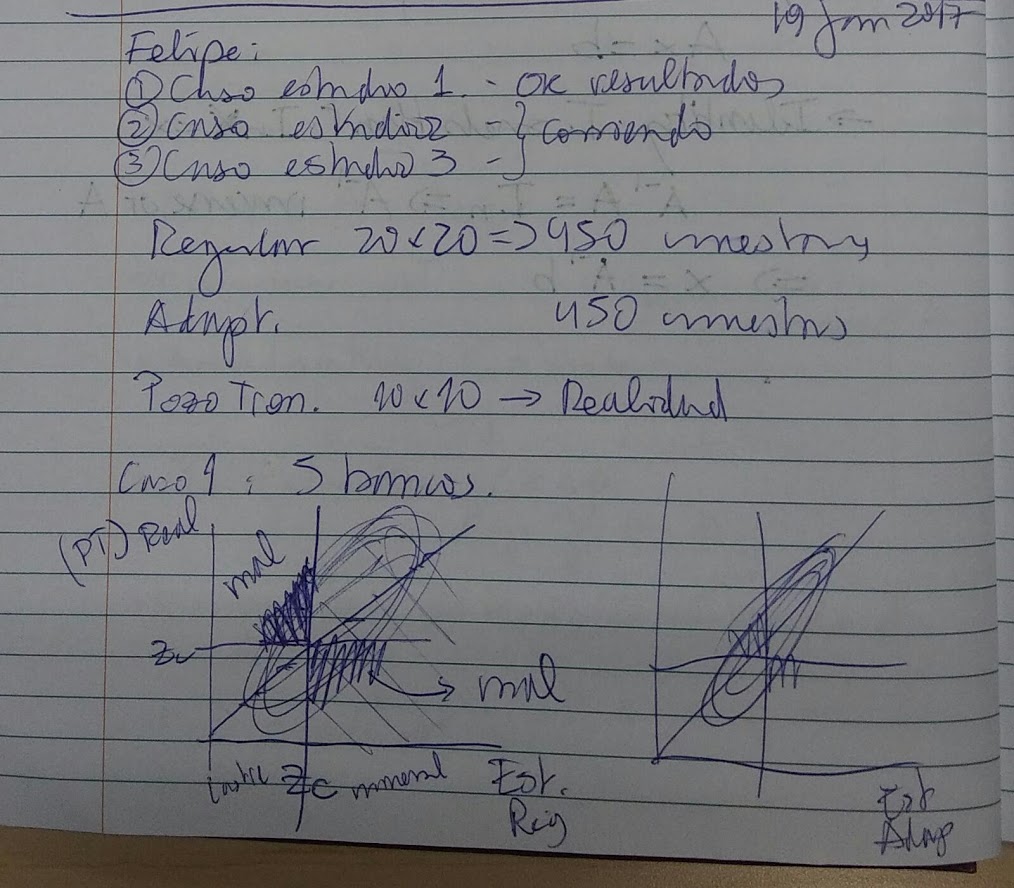 19 Jan 2017
Felipe:
① Caso estudio 1. - OK resultados
② Caso estudio 2 - } corriendo
③ Caso estudio 3 -
Regular 20x20 => 450 muestras
Adapt. 450 muestras
Pozo Tron. 10x10 → Realidad
Caso 1: 5 bancos.
(PT) Real
mal
Zc
mal
lastre Zc mineral Est.
Reg
Est
Adap